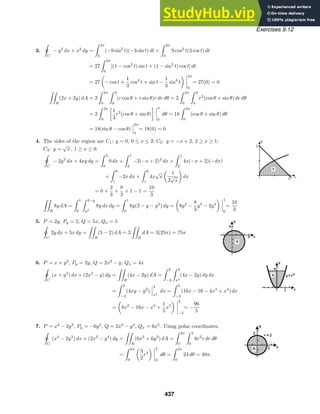 StudentsHelp.Expert
Exercises 9.12
3. ∮_C − y² dx + x² dy = ∫_0^{2π} (−9 sin² t)(−3 sin t) dt + ∫_0^{2π} 9 cos² t(3 cos t) dt
= 27 ∫_0^{2π} [(1 − cos² t) sin t + (1 − sin² t) cos t] dt
= 27 (− cos t + 1/3 cos³ t + sin t − 1/3 sin³ t) |_0^{2π} = 27(0) = 0
∬_R (2x + 2y) dA = 2 ∫_0^{2π} ∫_0^3 (r cos θ + r sin θ)r dr dθ = 2 ∫_0^{2π} ∫_0^3 r²(cos θ + sin θ) dr dθ
= 2 ∫_0^{2π} [1/3 r³(cos θ + sin θ)] |_0^3 dθ = 18 ∫_0^{2π} (cos θ + sin θ) dθ
= 18(sin θ − cos θ) |_0^{2π} = 18(0) = 0
4. The sides of the region are C1: y = 0, 0 ≤ x ≤ 2; C2: y = −x + 2, 2 ≥ x ≥ 1;
C3: y = √x , 1 ≥ x ≥ 0.
∮_C − 2y² dx + 4xy dy = ∫_0^2 0 dx + ∫_2^1 −2(−x + 2)² dx + ∫_2^1 4x(−x + 2)(−dx)
+ ∫_1^0 −2x dx + ∫_1^0 4x√x (1/(2√x)) dx
= 0 + 2/3 + 8/3 + 1 − 1 = 10/3
∬_R 8y dA = ∫_0^1 ∫_{y²}^{2−y} 8y dx dy = ∫_0^1 8y(2 − y − y²) dy = (8y² − 8/3 y³ − 2y⁴) |_0^1 = 10/3
5. P = 2y, Py = 2, Q = 5x, Qx = 5
∮_C 2y dx + 5x dy = ∬_R (5 − 2) dA = 3 ∬_R dA = 3(25π) = 75π
6. P = x + y², Py = 2y, Q = 2x² − y, Qx = 4x
∮_C (x + y²) dx + (2x² − y) dy = ∬_R (4x − 2y) dA = ∫_{−2}^2 ∫_{x²}^4 (4x − 2y) dy dx
= ∫_{−2}^2 (4xy − y²) |_{x²}^4 dx = ∫_{−2}^2 (16x − 16 − 4x³ + x⁴) dx
= (8x² − 16x − x⁴ + 1/5 x⁵) |_{−2}^2 = − 96/5
7. P = x⁴ − 2y³, Py = −6y², Q = 2x³ − y⁴, Qx = 6x². Using polar coordinates,
∮_C (x⁴ − 2y³) dx + (2x³ − y⁴) dy = ∬_R (6x² + 6y²) dA = ∫_0^{2π} ∫_0^2 6r²r dr dθ
= ∫_0^{2π} (3/2 r⁴) |_0^2 dθ = ∫_0^{2π} 24 dθ = 48π.
437